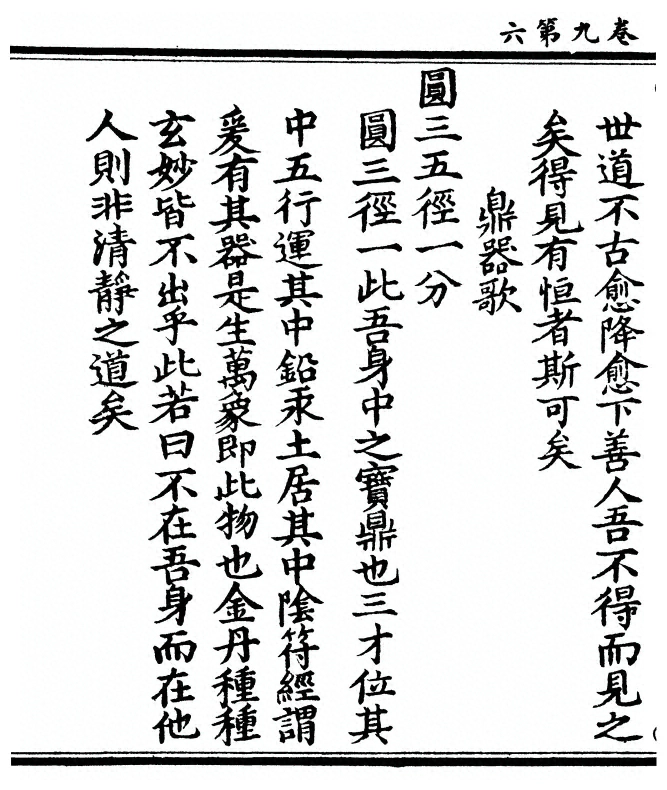 卷九第六
世道不古愈降愈下善人吾不得而見之
矣得見有恒者斯可矣
鼎器歌
圓三五徑一分
圓三徑一此吾身中之寶鼎也三才位其
中五行運其中鉛汞土居其中陰符經謂
爰有其器是生萬象即此物也金丹種種
玄妙皆不出乎此若曰不在吾身而在他
人則非清靜之道矣